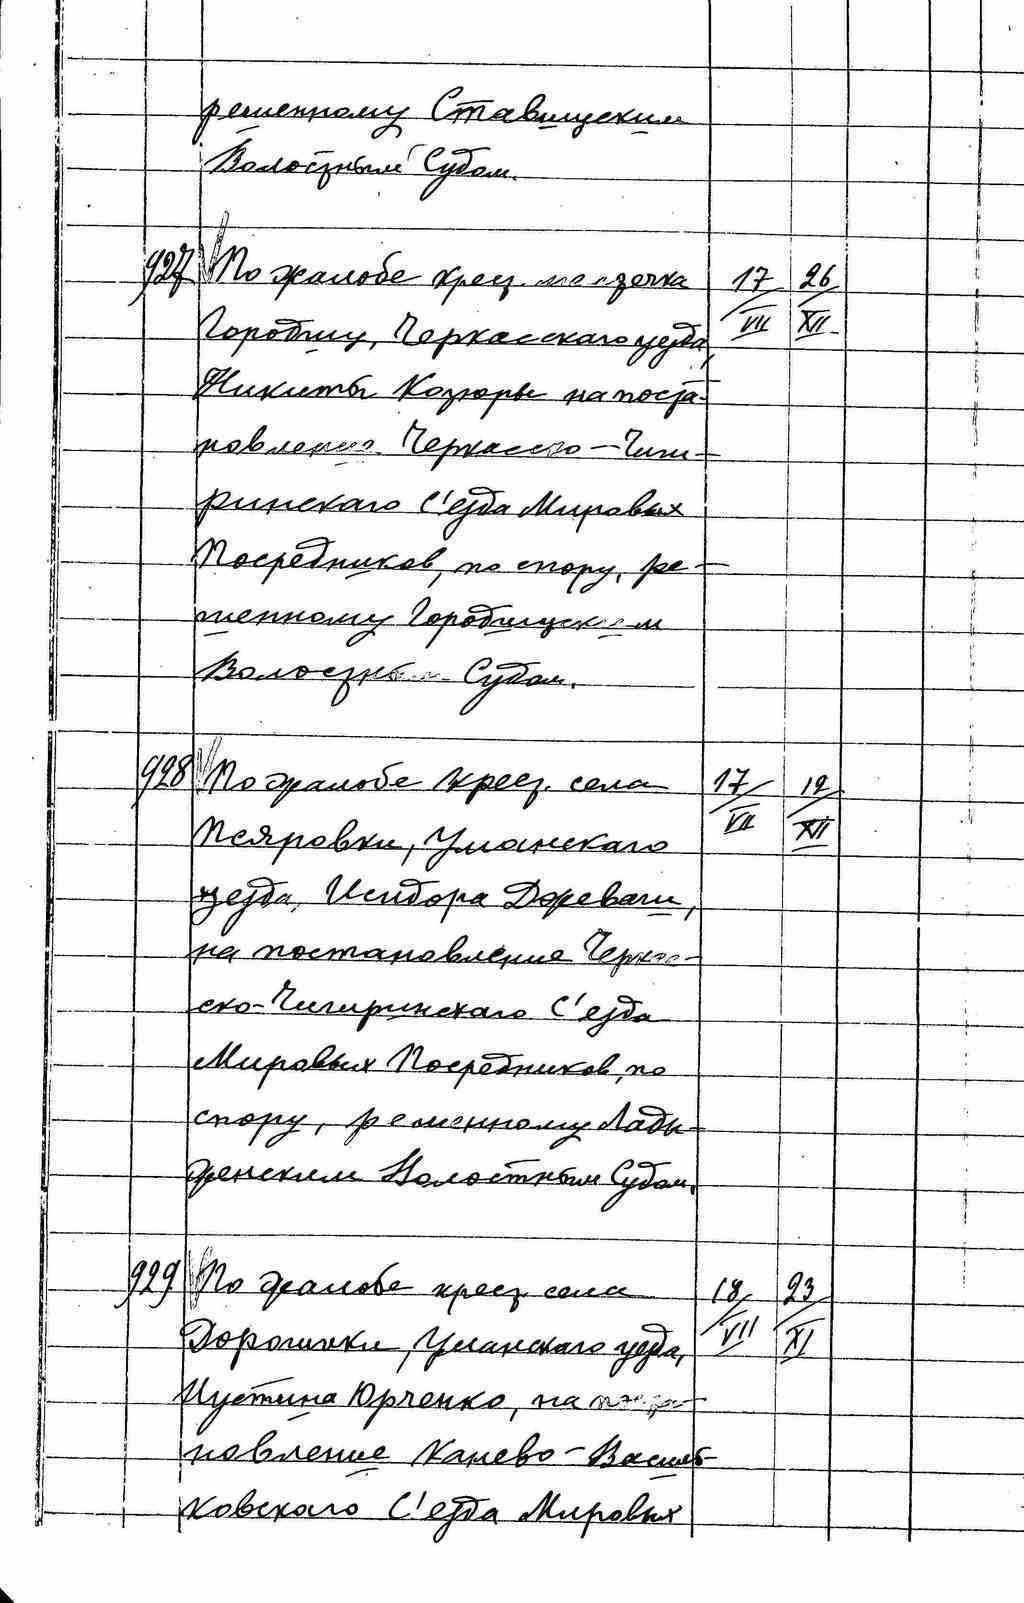 решенному Ставищским
Волостным Судом.
927 По жалобе крест. местечка 17/VII 26/XII
Городищ, Черкасскаго уезда,
Никиты Козюры на поста-
новление Черкасско-Чиги-
ринскаго С'езда Мировых
Посредников, по спору, ре-
шенному Городищским
Волостным Судом.
928 По жалобе крест. села 17/VII 12/XII
Псяровки, Уманскаго
уезда, Исидора Дожевачи,
на постановление Черкас-
ско-Чигиринскаго С'езда
Мировых Посредников, по
спору, решенному Лады-
женским Волостным Судом.
929 По жалобе крест. села 18/VII 23/XI
Дорошки, Уманскаго уезда,
Иустина Юрченко, на поста-
новление Канево-Василь-
ковскаго С'езда Мировых